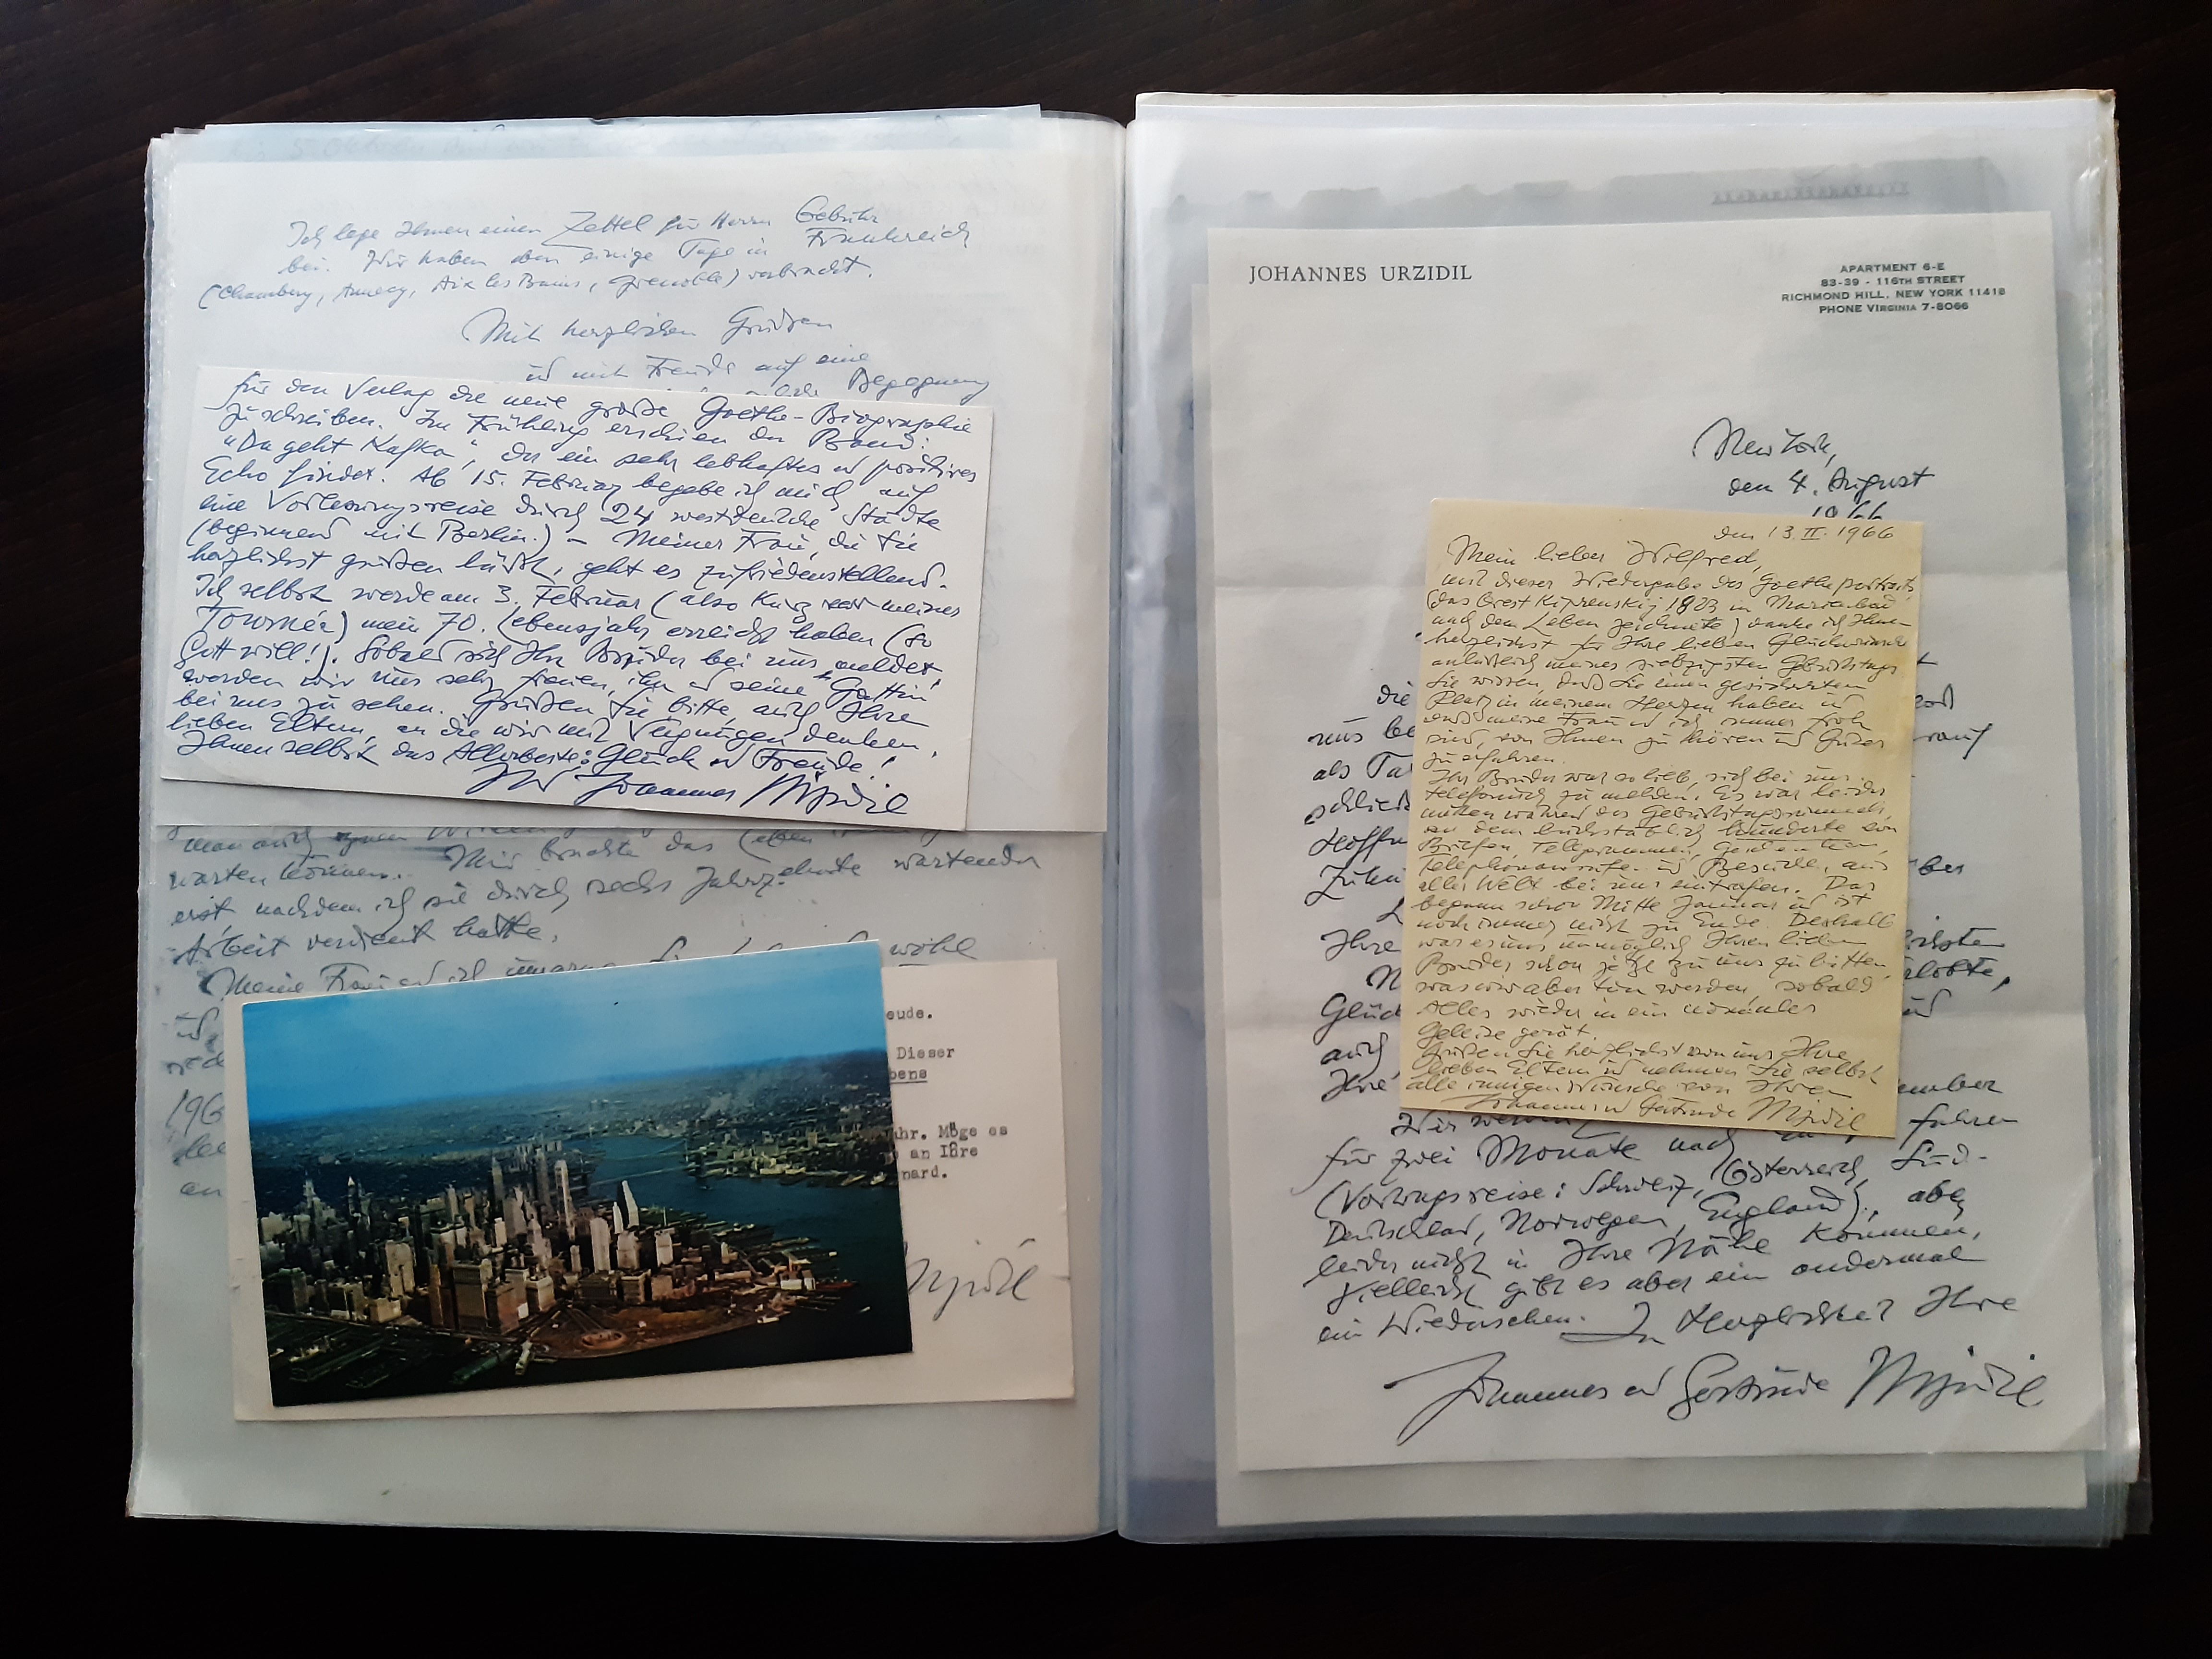 Ich lege Ihnen einen Zettel für Herrn Gebühr
bei. Wir haben eben einige Tage in Frankreich
(Chambery, Annecy, Aix les Bains, Grenoble) verbracht.
Mit herzlichen Grüßen
und mit Freude auf eine
Begegnung
für den Verlag die neue große Goethe-Biographie
zu schreiben. Im Frühling erschien der Band:
"Da geht Kafka", der ein sehr lebhaftes u positives
Echo findet. Ab 15. Februar begebe ich mich auf
eine Vorlesungsreise durch 24 westdeutsche Städte
(beginnend mit Berlin.) – Meiner Frau, die Sie
herzlichst grüßen läßt, geht es zufriedenstellend.
Ich selbst werde am 3. Februar (also kurz vor meiner
Tournée) mein 70. Lebensjahr erreicht haben (so
Gott will!). Sobald sich Ihr Bruder bei uns meldet,
werden wir uns sehr freuen, ihn u seine Gattin
bei uns zu sehen. Grüßen Sie bitte, auch Ihre
lieben Eltern, an die wir mit Vergnügen denken.
Ihnen selbst das Allerbeste: Glück u Freude!
Ihr Johannes Urzidil
man auch
warten können. Mir brachte das Leben
erst nachdem ich sie durch sechs Jahrzehnte wartender
Arbeit verdient hatte.
Meine Frau und ich wohl
196
eude.
Dieser
bens
ahr. Möge es
an Ihre
nard.
Urzidil
JOHANNES URZIDIL
APARTMENT 6-E
83-39 - 116TH STREET
RICHMOND HILL, NEW YORK 11418
PHONE VIRGINIA 7-8066
New York,
den 4. August
1966
den 13. II. 1966
Mein lieber Wilfred,
mit dieser Wiedergabe des Goetheporträts
(das Orest Kiprenskij 1823 in Marienbad
nach dem Leben zeichnete) danke ich Ihnen
herzlichst für Ihre lieben Glückwünsche
anläßlich meines siebzigsten Geburtstags
Sie wissen, daß Sie einen gesicherten
Platz in meinem Herzen haben und
daß meine Frau u ich immer froh
sind, von Ihnen zu hören und Gutes
zu erfahren.
Ihr Bruder war so lieb, sich bei uns
telefonisch zu melden. Es war leider
mitten während des Geburtstagsrummels,
an dem buchstäblich hunderte von
Briefen, Telegrammen, Geschenken,
Telephonanrufe und Besuche, aus
aller Welt bei uns eintrafen. Das
begann schon Mitte Januar und ist
noch immer nicht zu Ende. Deshalb
war es uns unmöglich Ihren lieben
Bruder schon jetzt zu uns zu bitten,
was wir aber tun werden, sobald
Alles wieder in ein normales
Geleise gerät.
Grüßen Sie herzlichst von uns Ihre
lieben Eltern u nehmen Sie selbst
alle innigen Wünsche von Ihren
Johannes u Gertrude Urzidil
die
uns be
als Ta
schließ
Hoffn
Zuku
Ihre
Glück
auch
Ihre ember
Wir fahren
für zwei Monate nach
(Vortragsreise: Schweiz, Österreich, Süd-
Deutschland, Norwegen, England), aber
leider nicht in Ihre Nähe kommen.
Vielleicht gibt es aber ein andermal
ein Wiedersehen. In Herzlichkeit Ihre
Johannes und Gertrude Urzidil